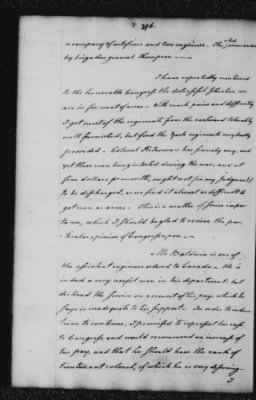 296.
a company of artificers and two engineers. The whole commanded
by brigadier general Thompson
I have repeatedly mentioned
to the honorable Congress the distressful situation we
are in for want of arms. With much pains and difficulty
I got most of the regiments from the eastward tolerably
well furnished, but find the York regiments very badly
provided. Colonel Ritzema's has scarcely any, and
yet these men being inlisted during the war, and at
five dollars per month, ought not (in my judgment)
to be discharged, as we find it almost as difficult to
get men as arms. This is a matter of some impor-
tance, which I should be glad to receive the par-
ticular opinion of Congress upon.
Mr Baldwin is one of
the assistant engineers ordered to Canada. He is
indeed a very useful man in his department, but
declined the service on account of his pay, which he
says is inadequate to his support. In order to induce
him to continue, I promised to represent his case
to Congress and would recommend an increase of
his pay, and that he should have the rank of
lieutenant colonel, of which he is very deserving.
I